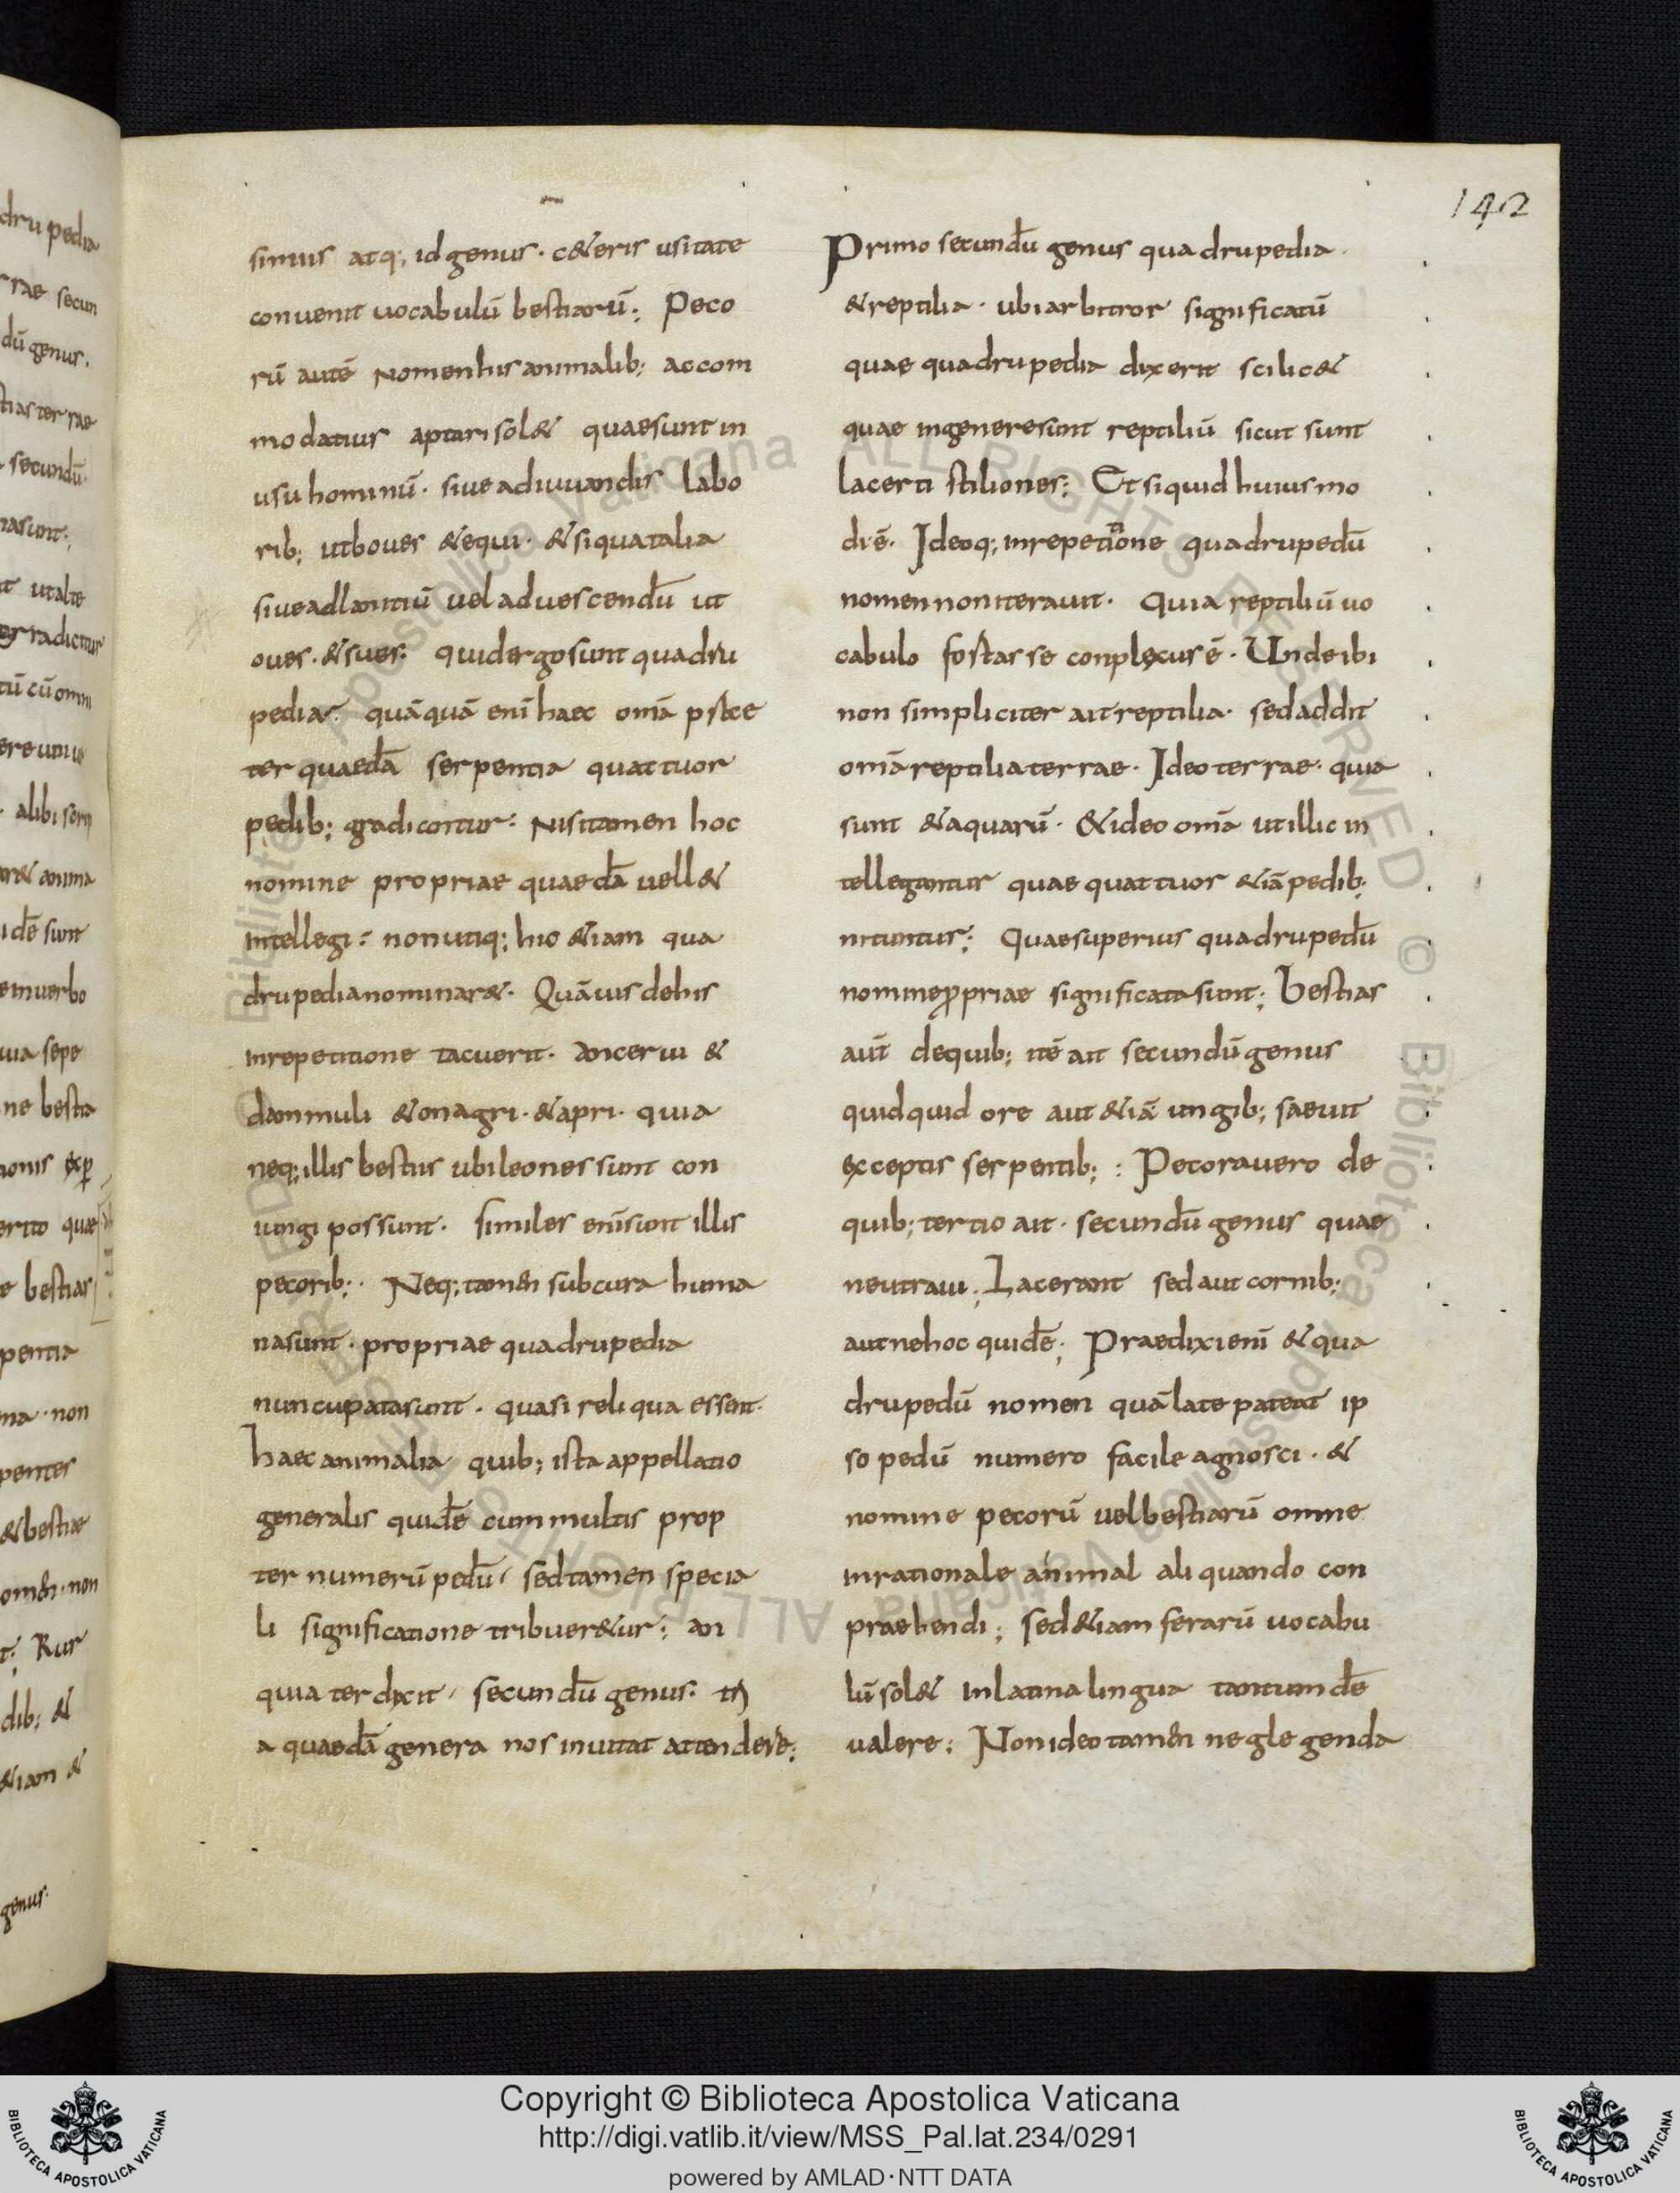 142
simiis atq; id genus · c&eris usitate
conuenit uocabulū bestiarū; Peco
rū autē Nomen his animalib; accom
modatius aptari sol& quae sunt in
usu hominū · siue adiuuandis labo
rib; ut boues & equi · & si qua talia
siue ad lanitiū uel ad uescendū ut
oues · & sues; quid ergo sunt quadru
pedia; quāquā enī haec om̄a p̄ter
ter quaedā serpentia quattuor
pedib; gradiantur: Nisi tamen hoc
nomine propriae quaedā uell&
intellegi: non utiq; hic &iam qua
drupedia nominar&· Quāuis de his
in repetitione tacuerit · an cerui &
dammuli & onagri · & apri · quia
neq; illis bestiis ubi leones sunt con
iungi possunt · similes enī sunt illis
pecorib; · Neq; tam̄ sub cura huma
na sunt · propriae quadrupedia
nuncupata sunt · quasi reliqua essent
haec animalia quib; ista appellatio
generalis quidē cum multis prop
ter numerū pedū · sed tamen specia
li significatione tribuer&ur; an
quia ter dixit · secundū genus · tri
a quaedā genera nos inuitat attendere;
Primo secundū genus quadrupedia ·
& reptilia · ubi arbitror significatū
quae quadrupedia dixerit scilic&
quae in genere sunt reptiliū sicut sunt
lacerti stiliones; Et si quid huius mo
di ē · Ideoq; in repetitione quadrupedū
nomen non iterauit · Quia reptiliū uo
cabulo fostasse conplexus ē · Unde ibi
non simpliciter ait reptilia · sed addit
om̄a reptilia terrae · Ideo terrae · quia
sunt & aquarū · & ideo om̄a ut illic in
tellegantur quae quattuor &iā pedib;
nituntur; Quae superius quadrupedū
nomine ꝓpriae significata sunt; Bestias
aūt de quib; itē ait secundū genus
quidquid ore aut &iā ungib; saeuit
exceptis serpentib; : Pecora uero de
quib; tertio ait · secundū genus quae
neutra ui; Lacerant sed aut cornib;
aut ne hoc quidē; Praedixi enī & qua
drupedū nomen quā late pateat ip
so pedū numero facile agnosci · &
nomine pecorū uel bestiarū omne
inrationale animal aliquando con
praehendi; sed &iam ferarū uocabu
lū sol& in latina lingua tantundē
ualere; Non ideo tam̄ neglegenda
Copyright © Biblioteca Apostolica Vaticana
http://digi.vatlib.it/view/MSS_Pal.lat.234/0291
powered by AMLAD·NTT DATA